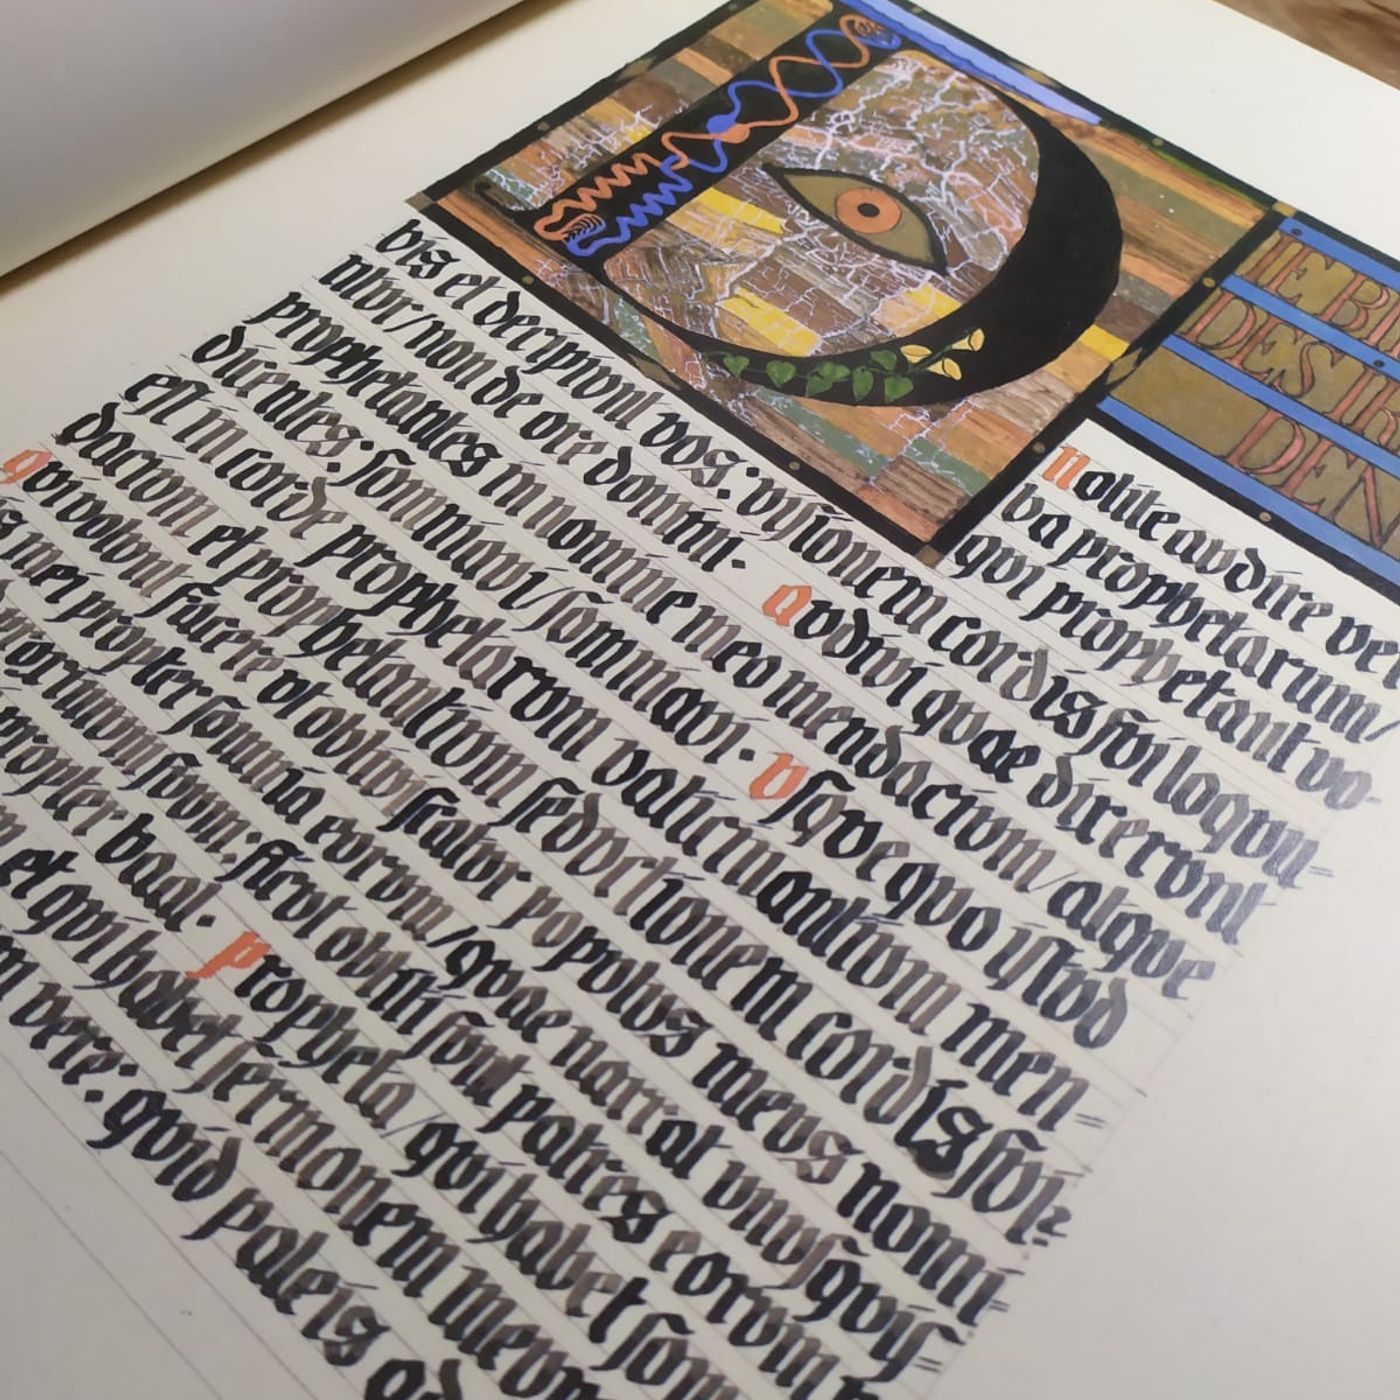 IEBI
DES IR
DEN
Nolite audire ve
ba prophetarum/
qui prophetant vo-
bis et decipiunt vos: visionem cordis sui loquu=
ntur/ non de ore domini. Audivi quae dixerunt
prophetantes in nomine meo mendacium/ atque
dicentes: somniavi/ somniavi. Usque quo istud
est in corde prophetarum vaticinantium men=
dacium et prophetantium seductionem cordis sui?
Qui volunt facere ut obliviscatur populus meus nomi=
is mei propter somnia eorum/ quae narrat unusquis=
proximum suum: sicut obliti sunt patres eorum
propter baal. Propheta/ qui habet som
et qui habet sermonem meum
vere: quid paleis ad